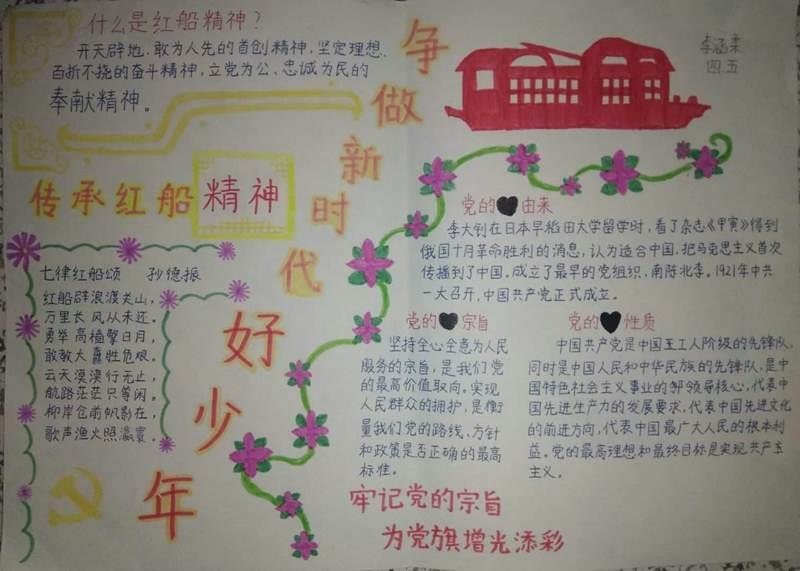 什么是红船精神？
开天辟地、敢为人先的首创精神，坚定理想、
百折不挠的奋斗精神，立党为公、忠诚为民的
奉献精神。
传承红船精神
争做新时代好少年
李涵柔
四五
七律红船颂 孙德振
红船辟浪渡关山，
万里长风从未还。
勇举高樯擎日月，
敢教大纛胜危艰。
云天漠漠行无止，
航路茫茫只等闲。
柳岸仓前帆影在，
歌声渔火照瀛寰。
党的由来
李大钊在日本早稻田大学留学时，看了杂志《甲寅》得到
俄国十月革命胜利的消息，认为适合中国，把马克思主义首次
传播到了中国。成立了最早的党组织，南陈北李。1921年中共
一大召开，中国共产党正式成立。
党的宗旨
坚持全心全意为人民
服务的宗旨，是我们党
的最高价值取向。实现
人民群众的拥护，是衡
量我们党的路线、方针
和政策是否正确的最高
标准。
党的性质
中国共产党是中国工人阶级的先锋队，
同时是中国人民和中华民族的先锋队，是中
国特色社会主义事业的领导核心，代表中
国先进生产力的发展要求，代表中国先进文化
的前进方向，代表中国最广大人民的根本利
益。党的最高理想和最终目标是实现共产主
主义。
牢记党的宗旨
为党旗增光添彩